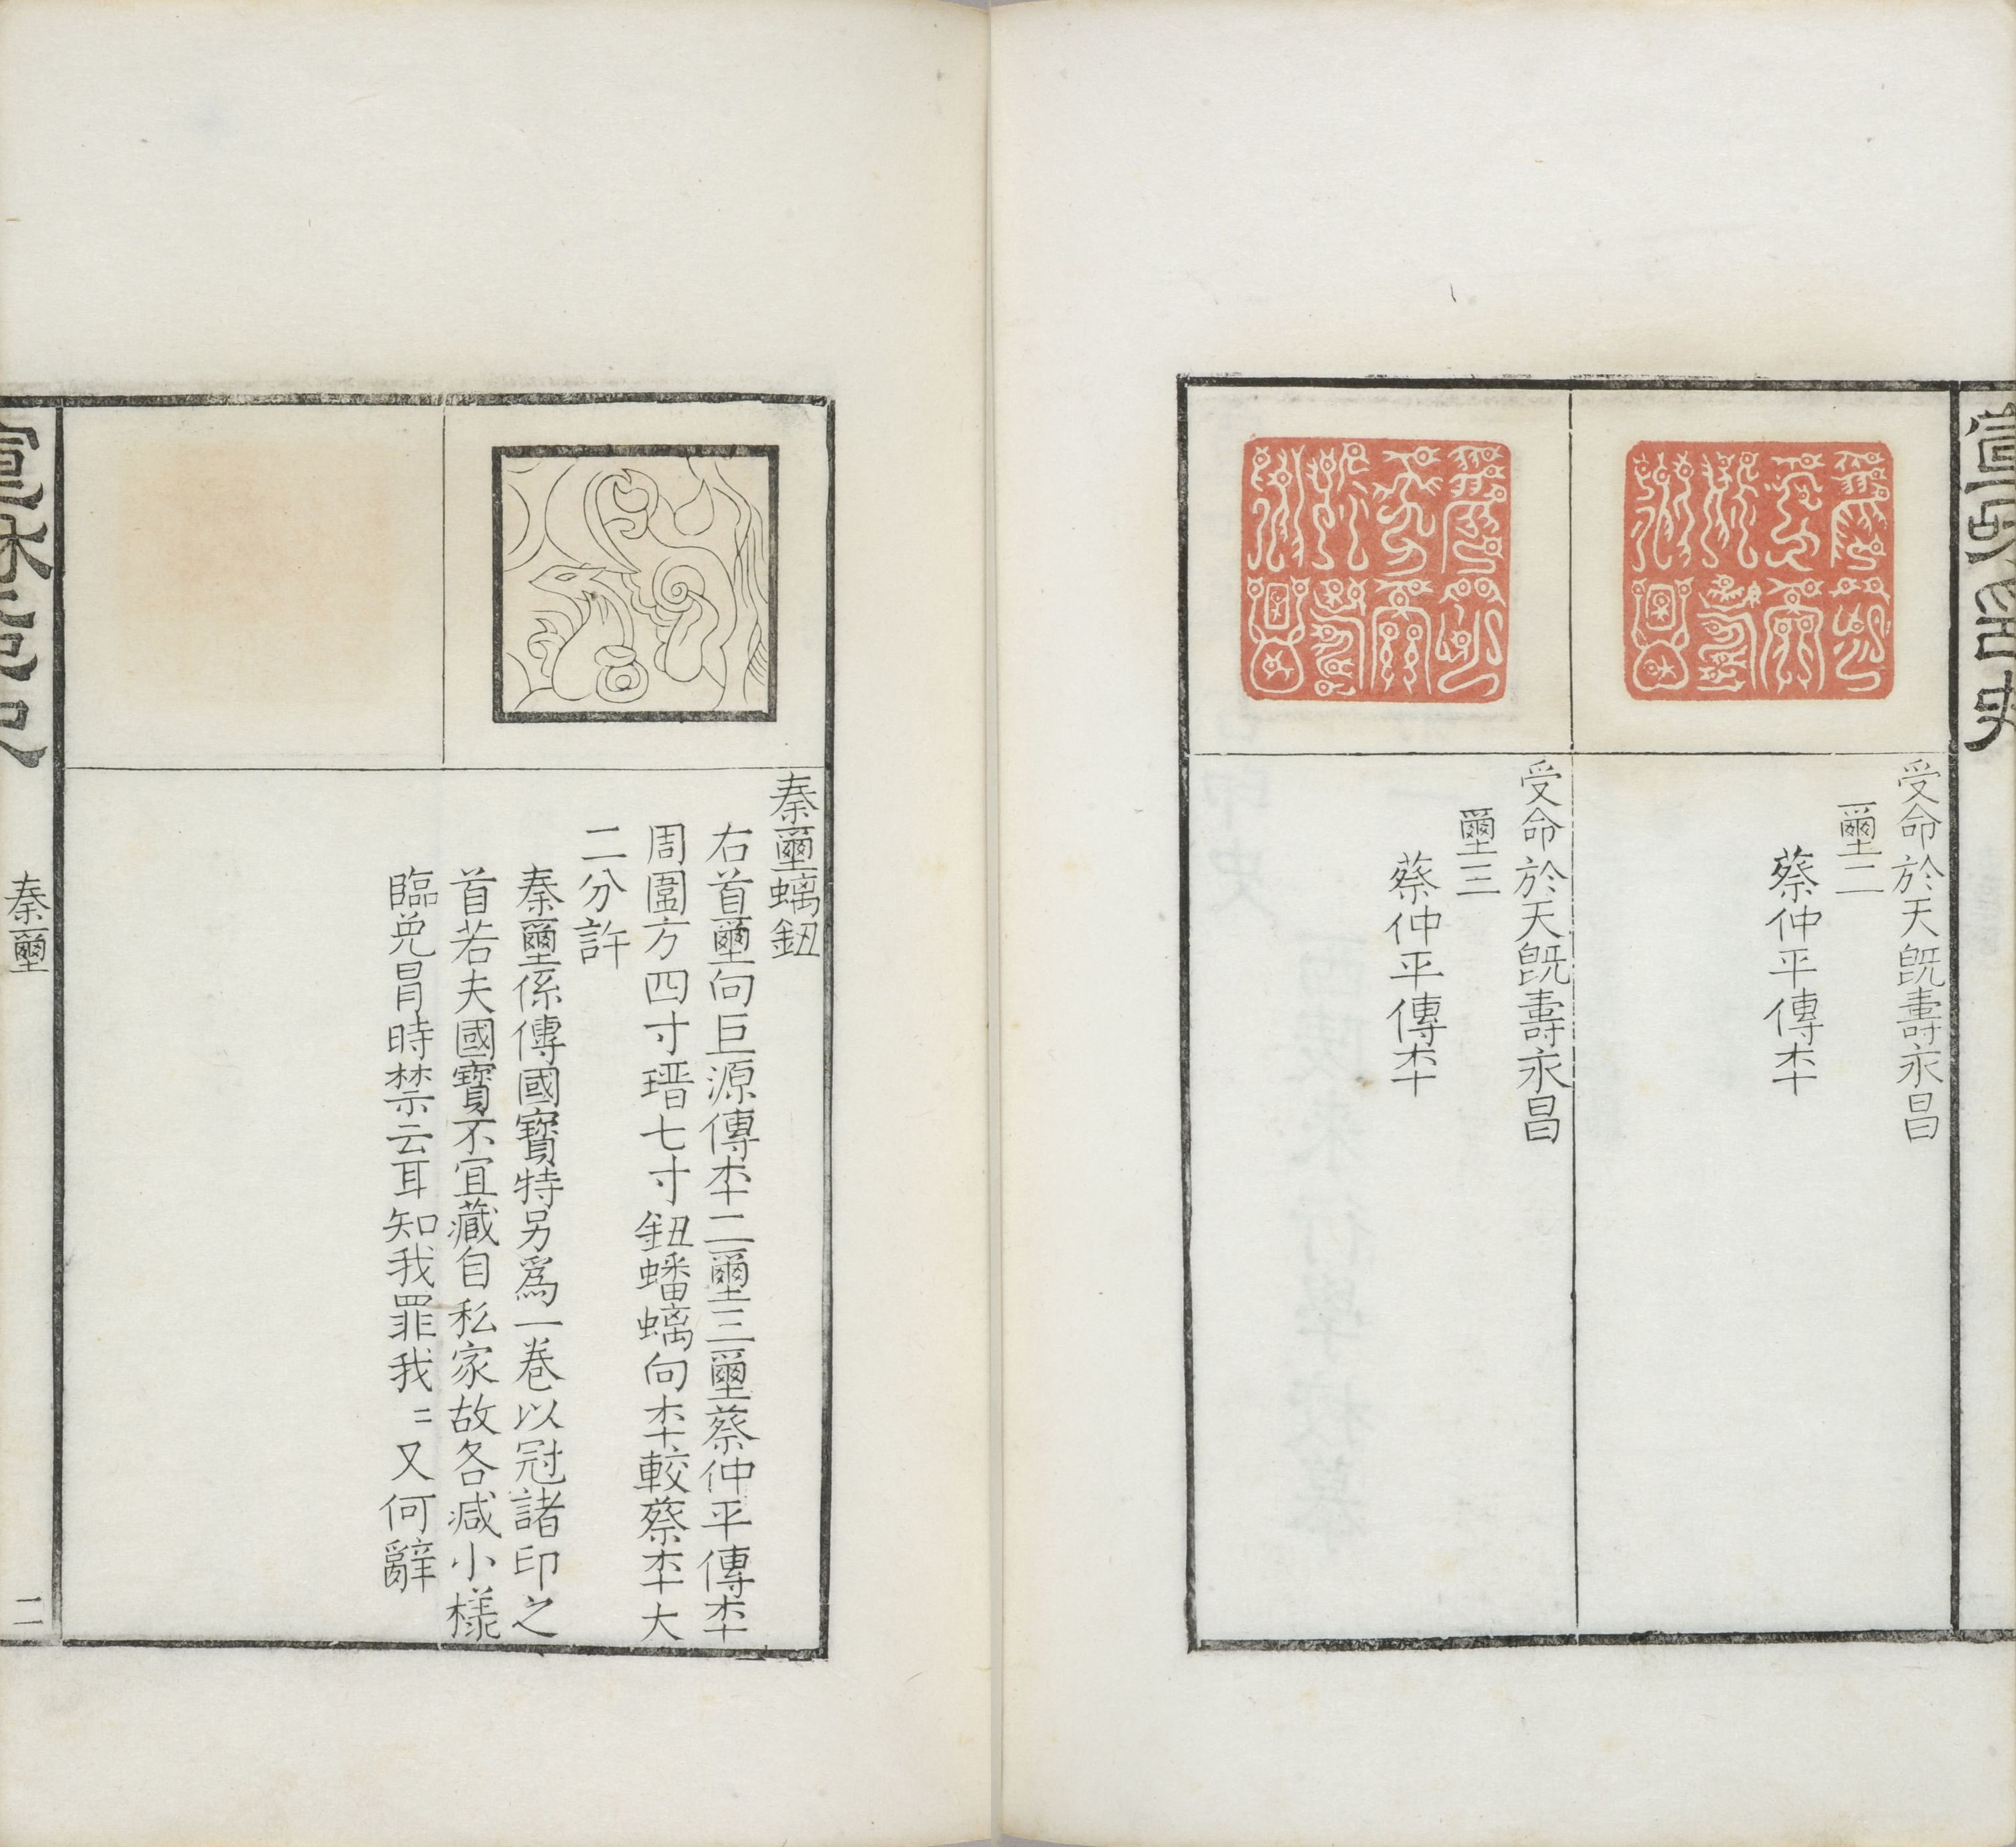 受命於天既壽永昌
壐二
蔡仲平傳本
受命於天既壽永昌
壐三
蔡仲平傳本
秦壐螭鈕
右首壐向巨源傳本二壐三壐蔡仲平傳本
周圍方四寸瑨七寸鈕蟠螭向本較蔡本大
二分許
秦壐係傳國寶特另爲一卷以冠諸印之
首若夫國寶不宜藏自私家故各減小樣
臨免冒時禁云耳知我罪我〻又何辭
秦壐
二